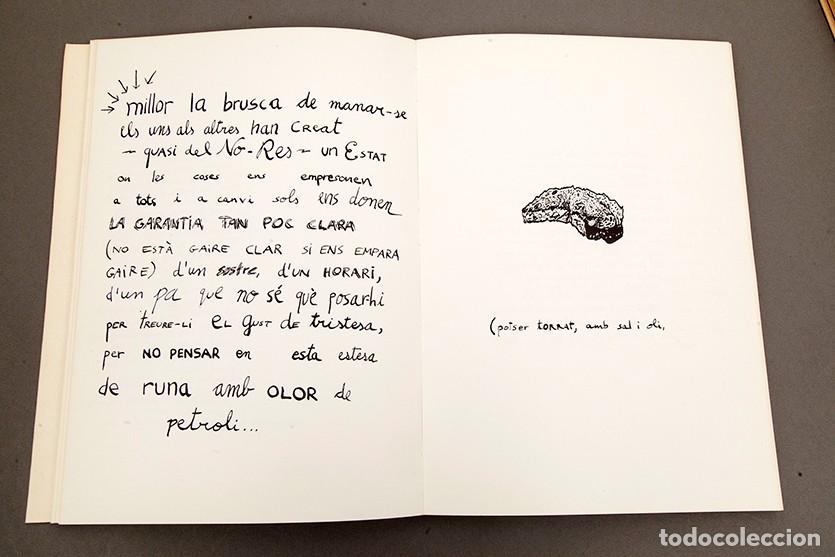 millor la brusca de manar-se
els uns als altres han creat
– quasi del No-Res – un Estat
on les coses ens empresonen
a tots i a canvi sols ens donen
LA GARANTIA TAN POC CLARA
(NO ESTÀ GAIRE CLAR SI ENS EMPARA
GAIRE) d'un sostre, d'UN HORARI,
d'un pa que no sé què posarhi
per treure-li el gust de tristesa,
per NO PENSAR en esta estesa
de runa amb OLOR de
petroli...
(potser torrat, amb sal i oli,
todocoleccion